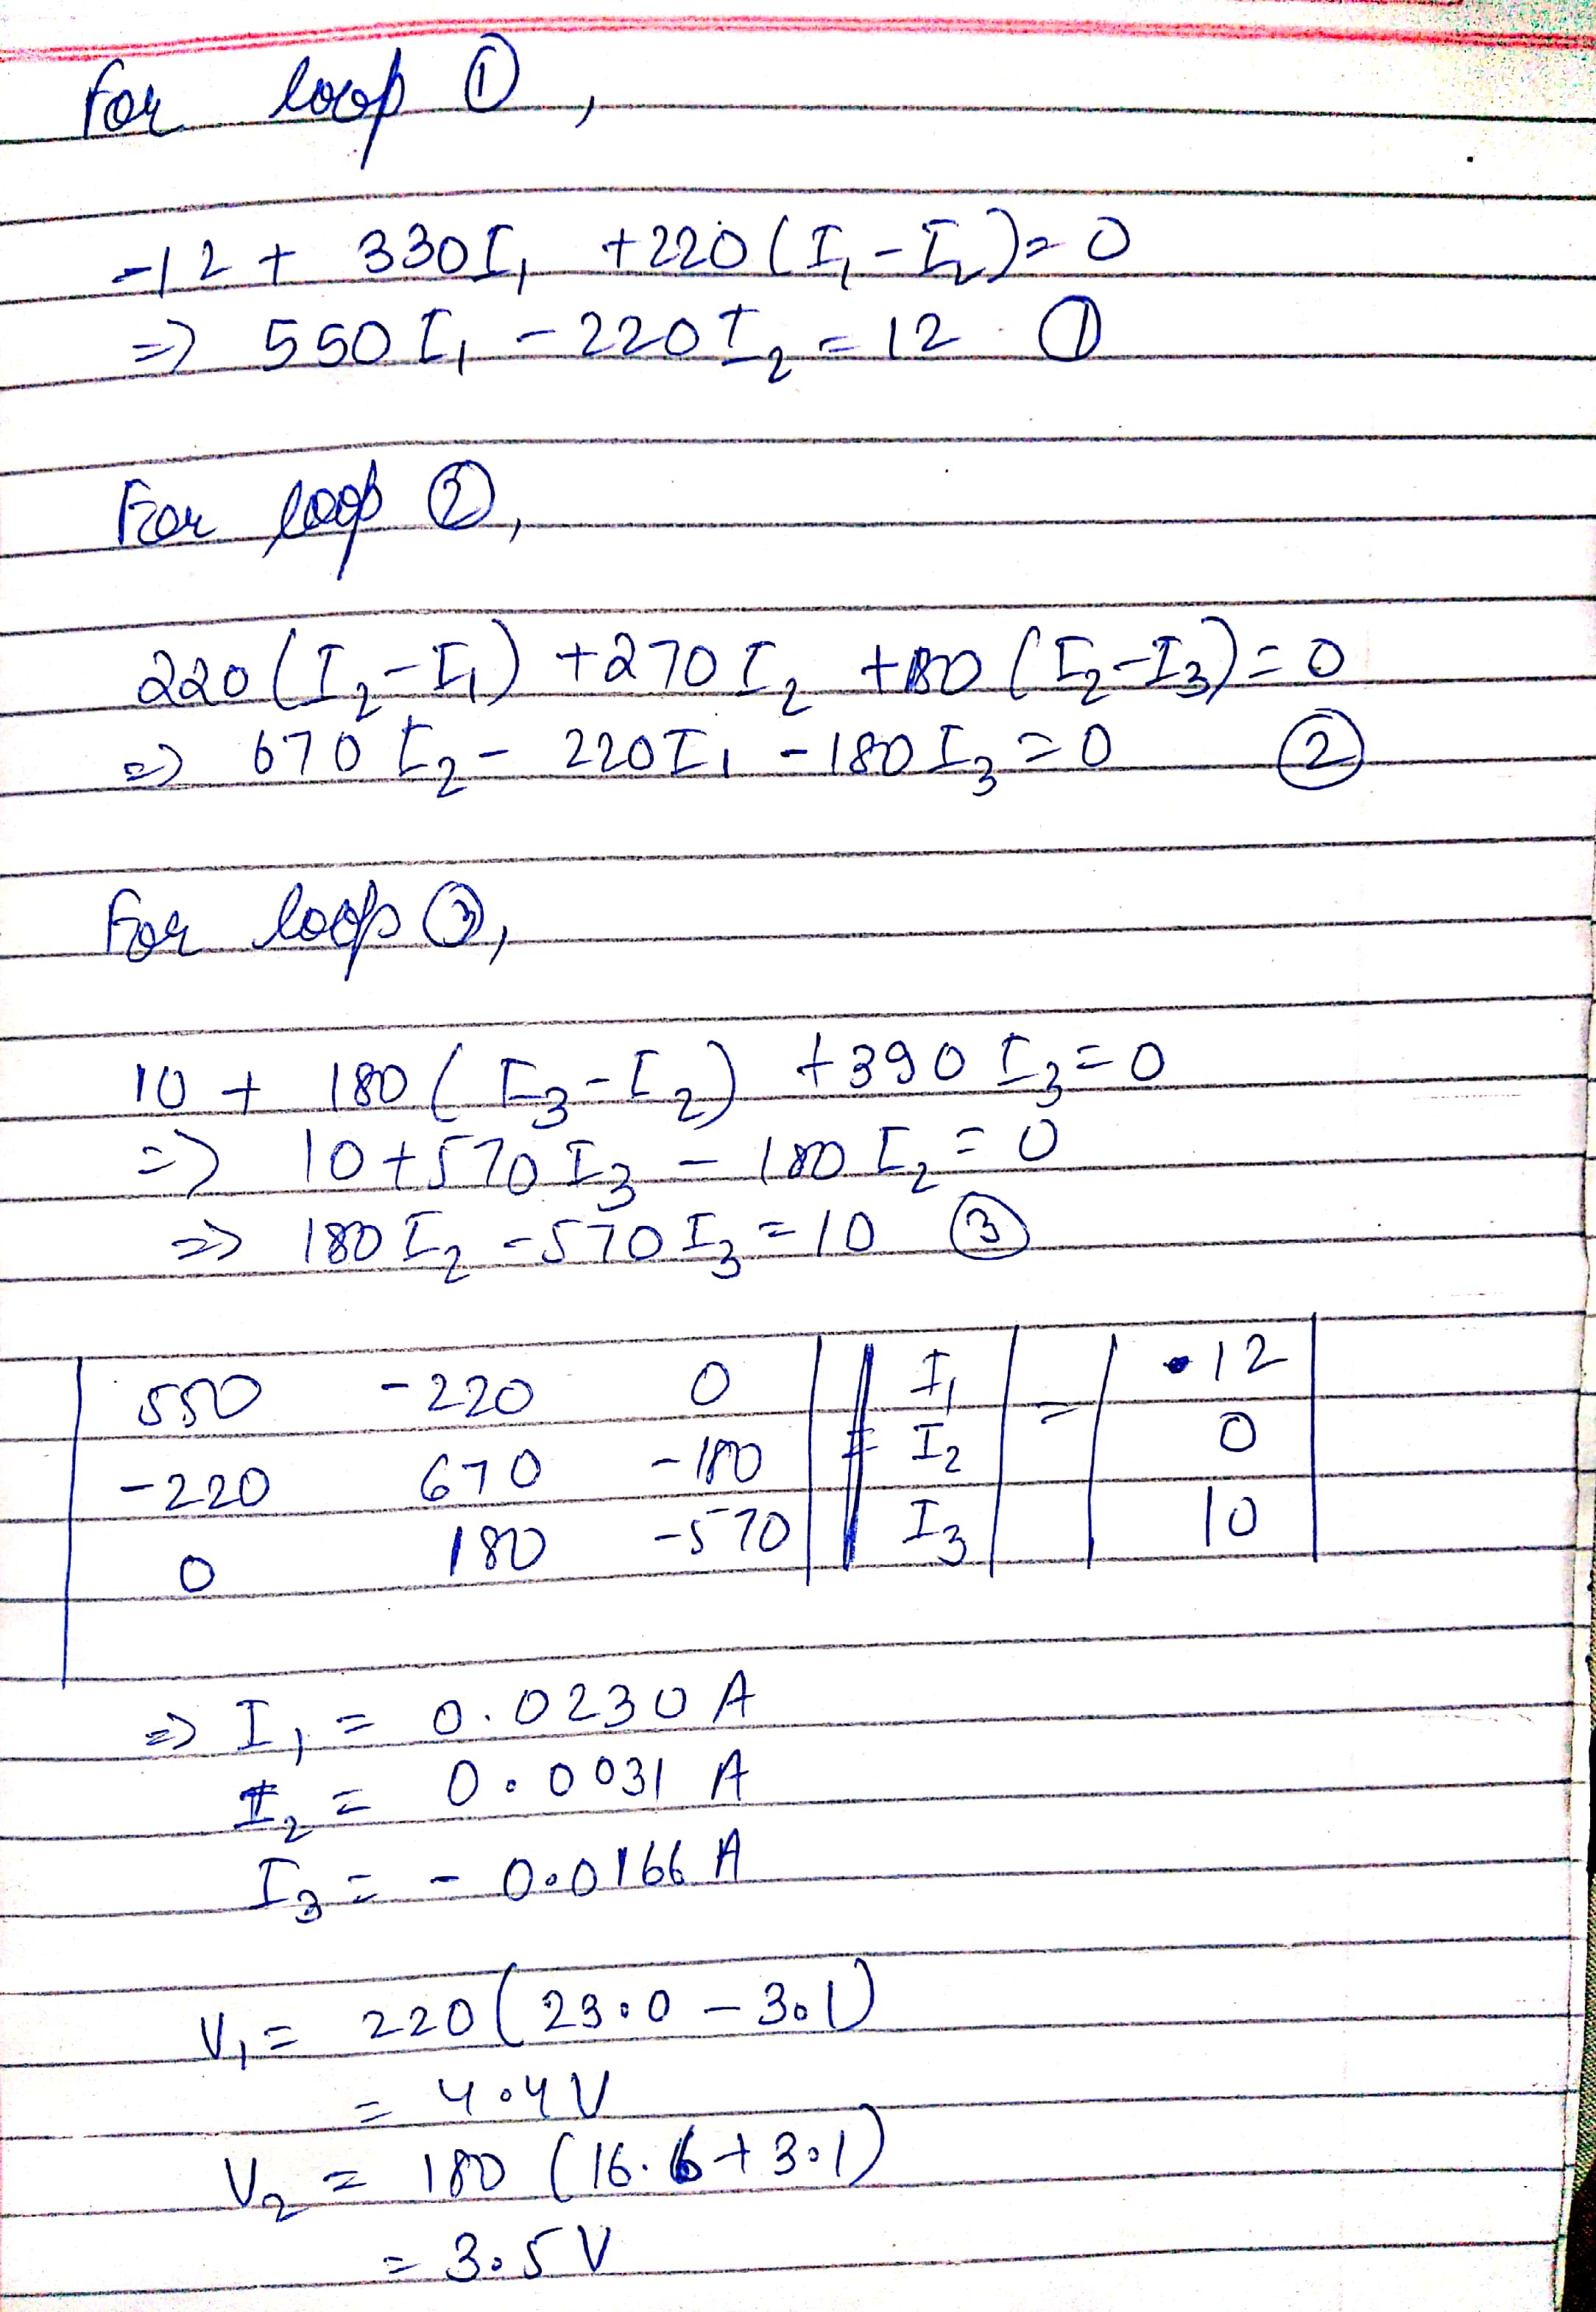 For loop ①,
-12 + 330I₁ +220(I₁-I₂)=0
=> 550I₁ -220I₂ = 12 ①
For loop ②,
220(I₂-I₁) +270I₂ +180(I₂-I₃)=0
=> 670I₂ - 220I₁ -180I₃ =0 ②
For loop ③,
10 + 180(I₃-I₂) +390I₃=0
=> 10+570I₃ - 180I₂ = 0
=> 180I₂ -570I₃ =10 ③
| 550 -220 0 | | I₁ | = | 12 |
| -220 670 -180 | | I₂ | | 0 |
| 0 180 -570 | | I₃ | | 10 |
=> I₁ = 0.0230 A
I₂ = 0.0031 A
I₃ = - 0.0166 A
V₁ = 220(23.0 - 3.1)
= 4.4 V
V₂ = 180 (16.6+3.1)
= 3.5 V